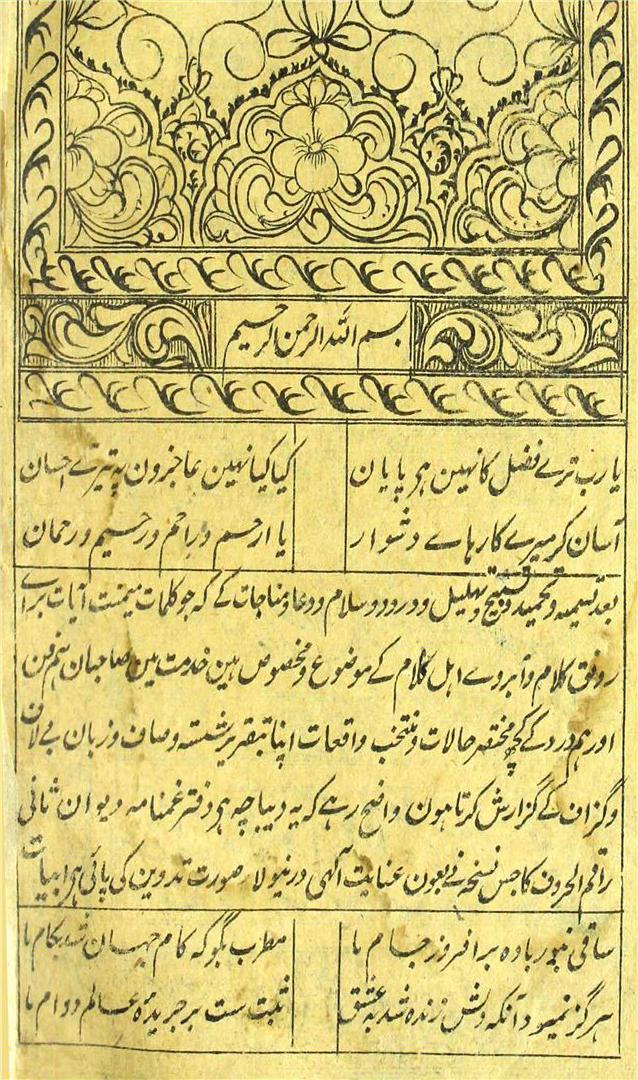 بسم الله الرحمن الرحیم
یارب ترے فضل کا نہین ہی پایان کیا کیا نہین عاجزون پہ تیرے احسان
آسان کر میرے کارہاے دشوار یا ارحم و راحم و رحیم و رحمان
بعد تسمیہ و تحمید و تسبیح و تہلیل و درود و سلام و دعا و مناجات کے کہ جو کلمات میمنت آیات براے
رونق کلام و آبروے اہل کلام کے موضوع و مخصوص ہین خدمت مین صاحبان ہم فن
اور ہم درد کے کچھ مختصر حالات و منتخب واقعات اپنا بتقریر شستہ و صاف و زبان بے لاف
و گزاف کے گزارش کرتا ہون واضح رہے کہ یہ دیباچہ ہی دفتر غمنامہ دیوان ثانی
راقم الحروف کا جس نسخہ نے بعون عنایت آلہی در نیولا صورت تدوین کی پائی ہی ابیات
ساقی بنور بادہ برافروز جام ما مطرب بگو کہ کام جہان شد بکام ما
ہرگز نمیرد آنکہ دلش زندہ شد بہ عشق ثبت ست بر جریدۂ عالم دوام ما